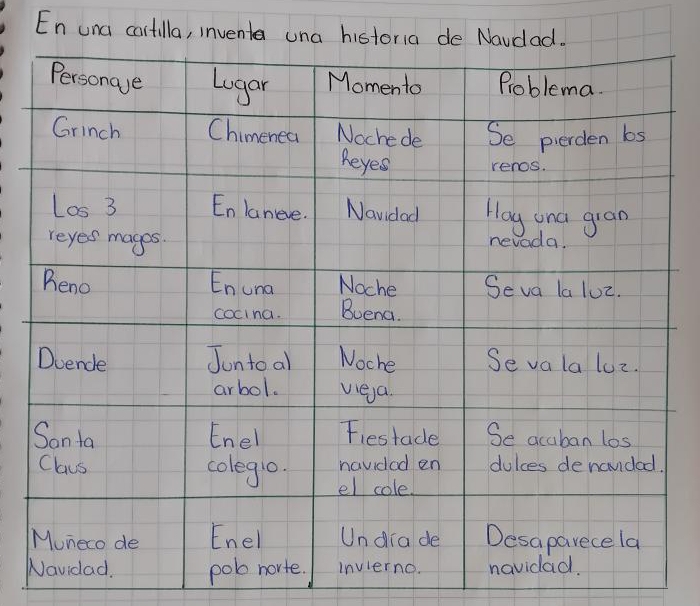 En una cartilla, inventa una historia de Navidad.
Personaje Lugar Momento Problema.
Grinch Chimenea Noche de Reyes Se pierden los renos.
Los 3 reyes magos. En la nieve. Navidad Hay una gran nevada.
Reno En una cocina. Noche Buena. Se va la luz.
Duende Junto al arbol. Noche vieja. Se va la luz.
Santa Claus En el colegio. Fiesta de navidad en el cole. Se acaban los dulces de navidad.
Muñeco de Navidad. En el polo norte. Un día de invierno. Desaparece la navidad.